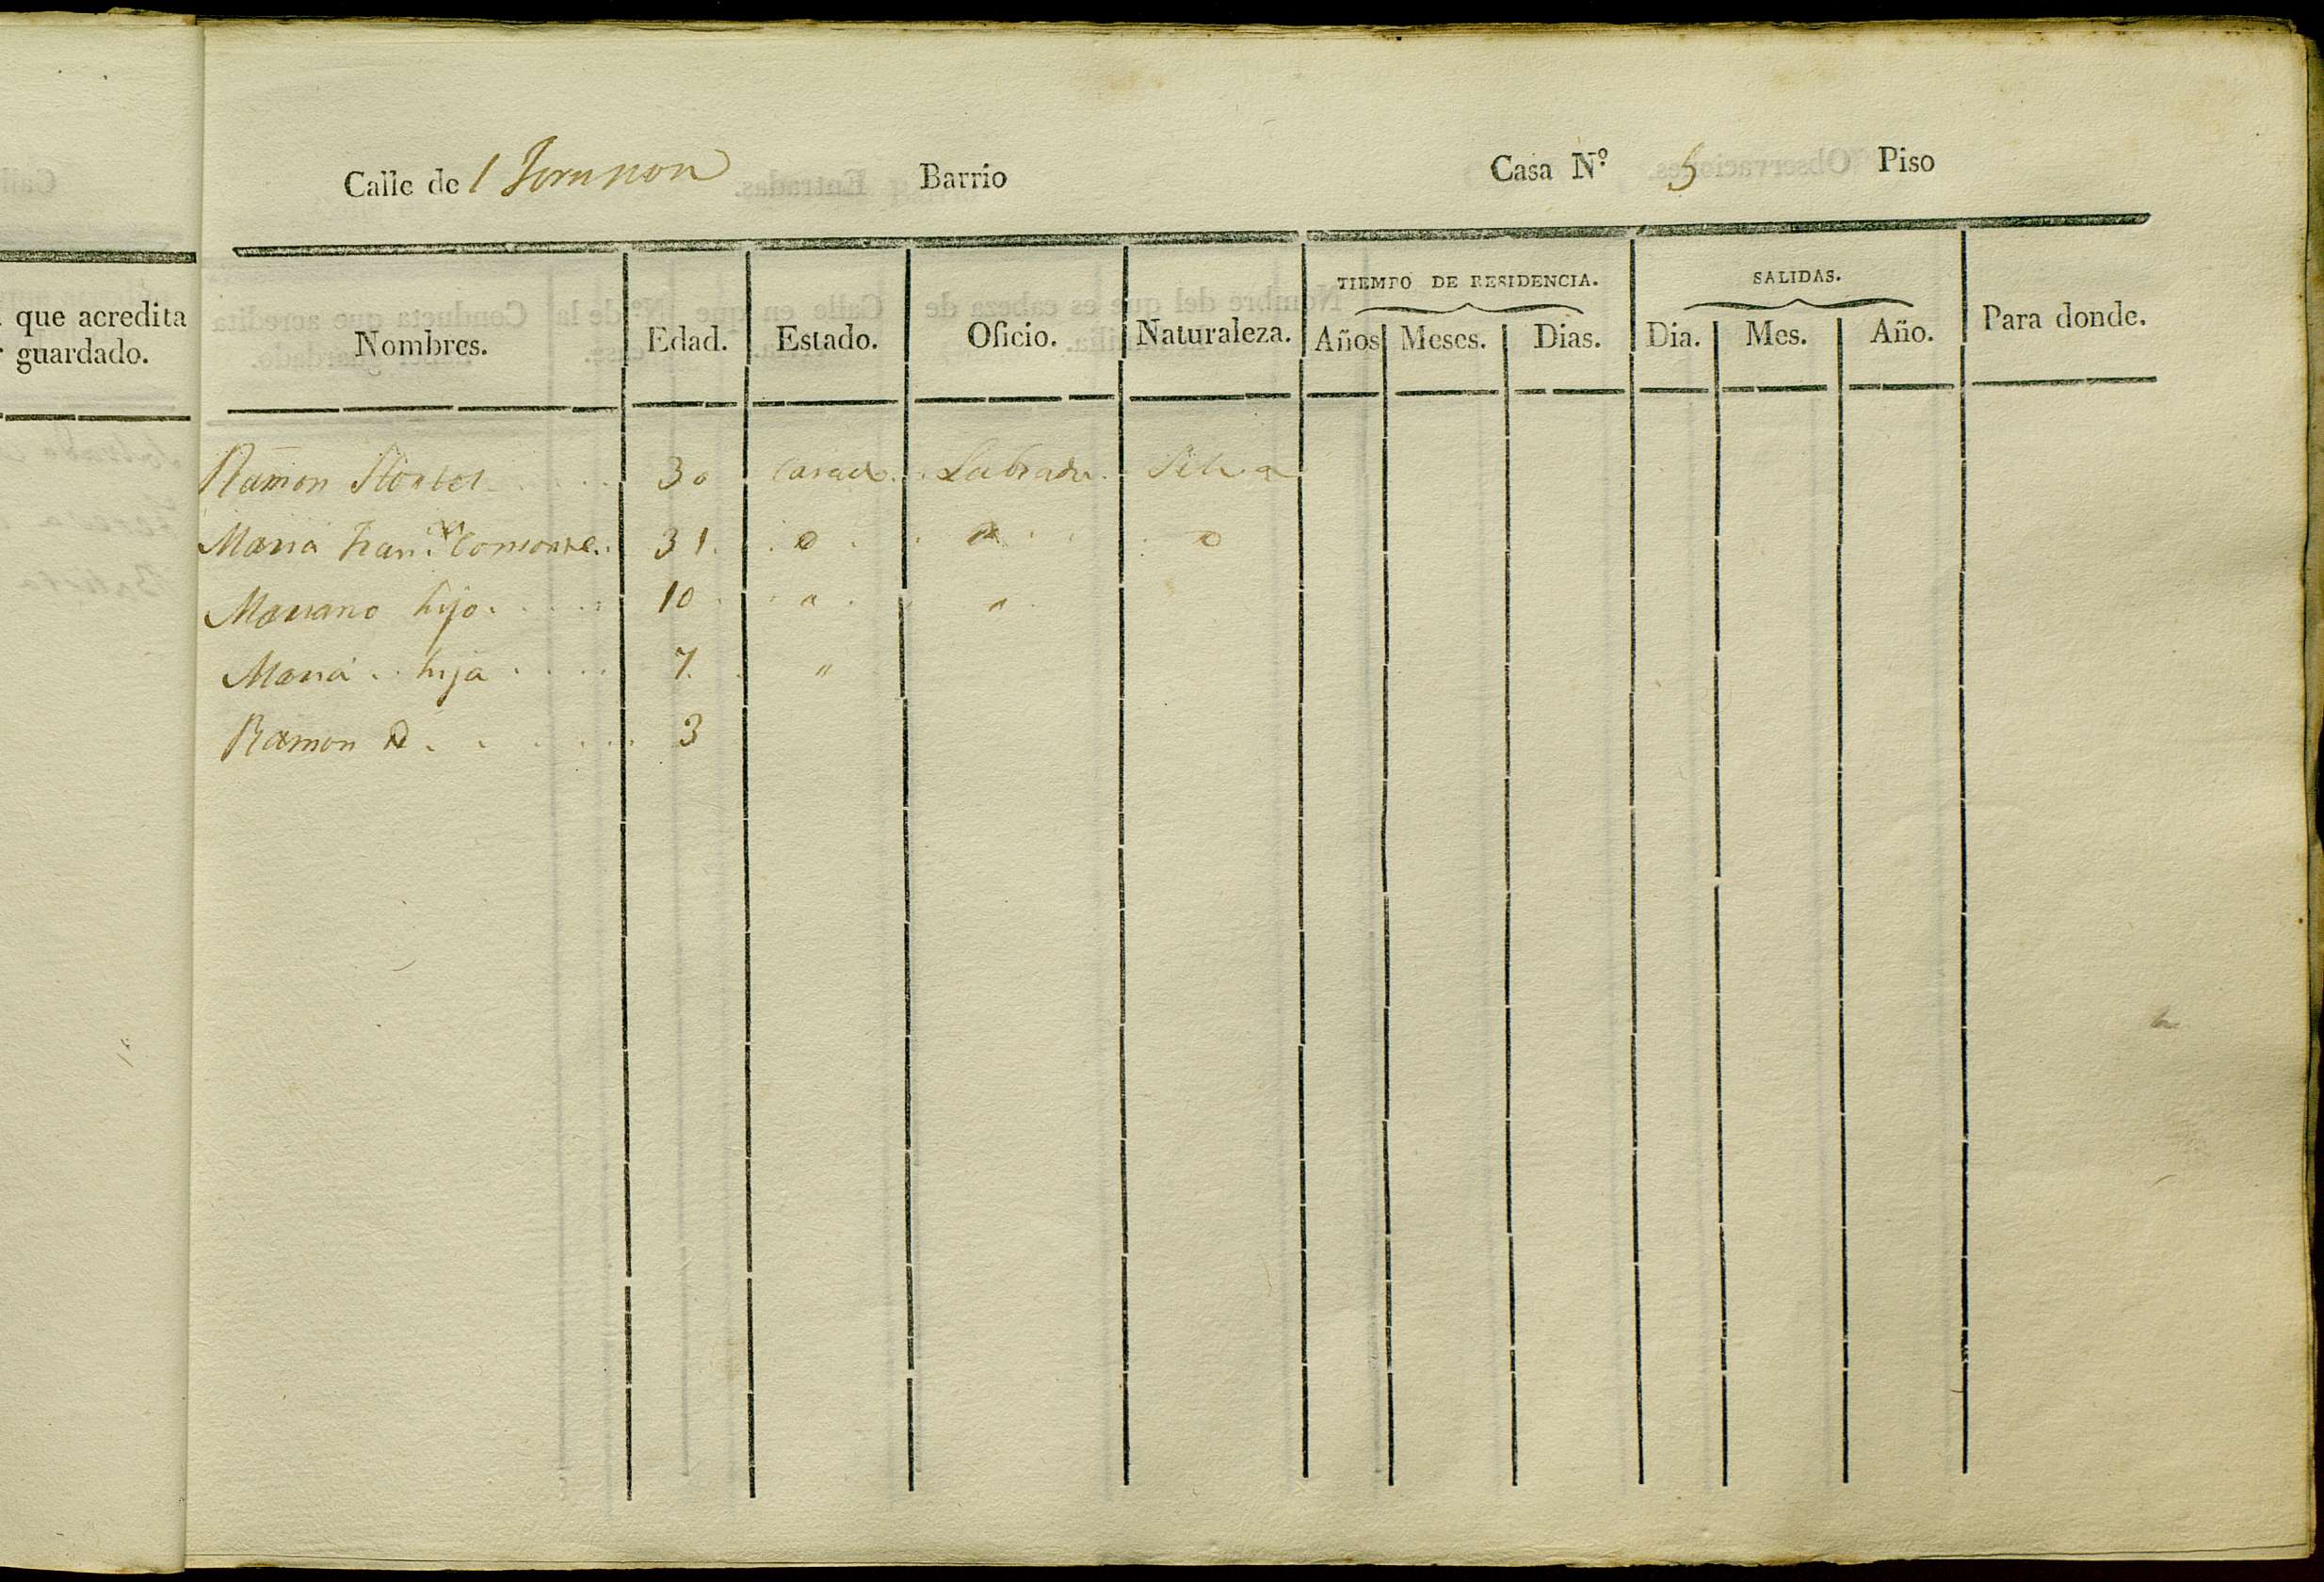 que acredita
guardado.
Calle de l Barrio Casa N.º 5 Piso
TIEMPO DE RESIDENCIA. SALIDAS.
Nombres. Edad. Estado. Oficio. Naturaleza. Años Meses. Dias. Dia. Mes. Año. Para donde.
Ramon 30 Casado Labrador Selva
Maria Fran.ca Consorte 31 D
Mariano hijo 10 "
Maria hija 7 "
Ramon D 3